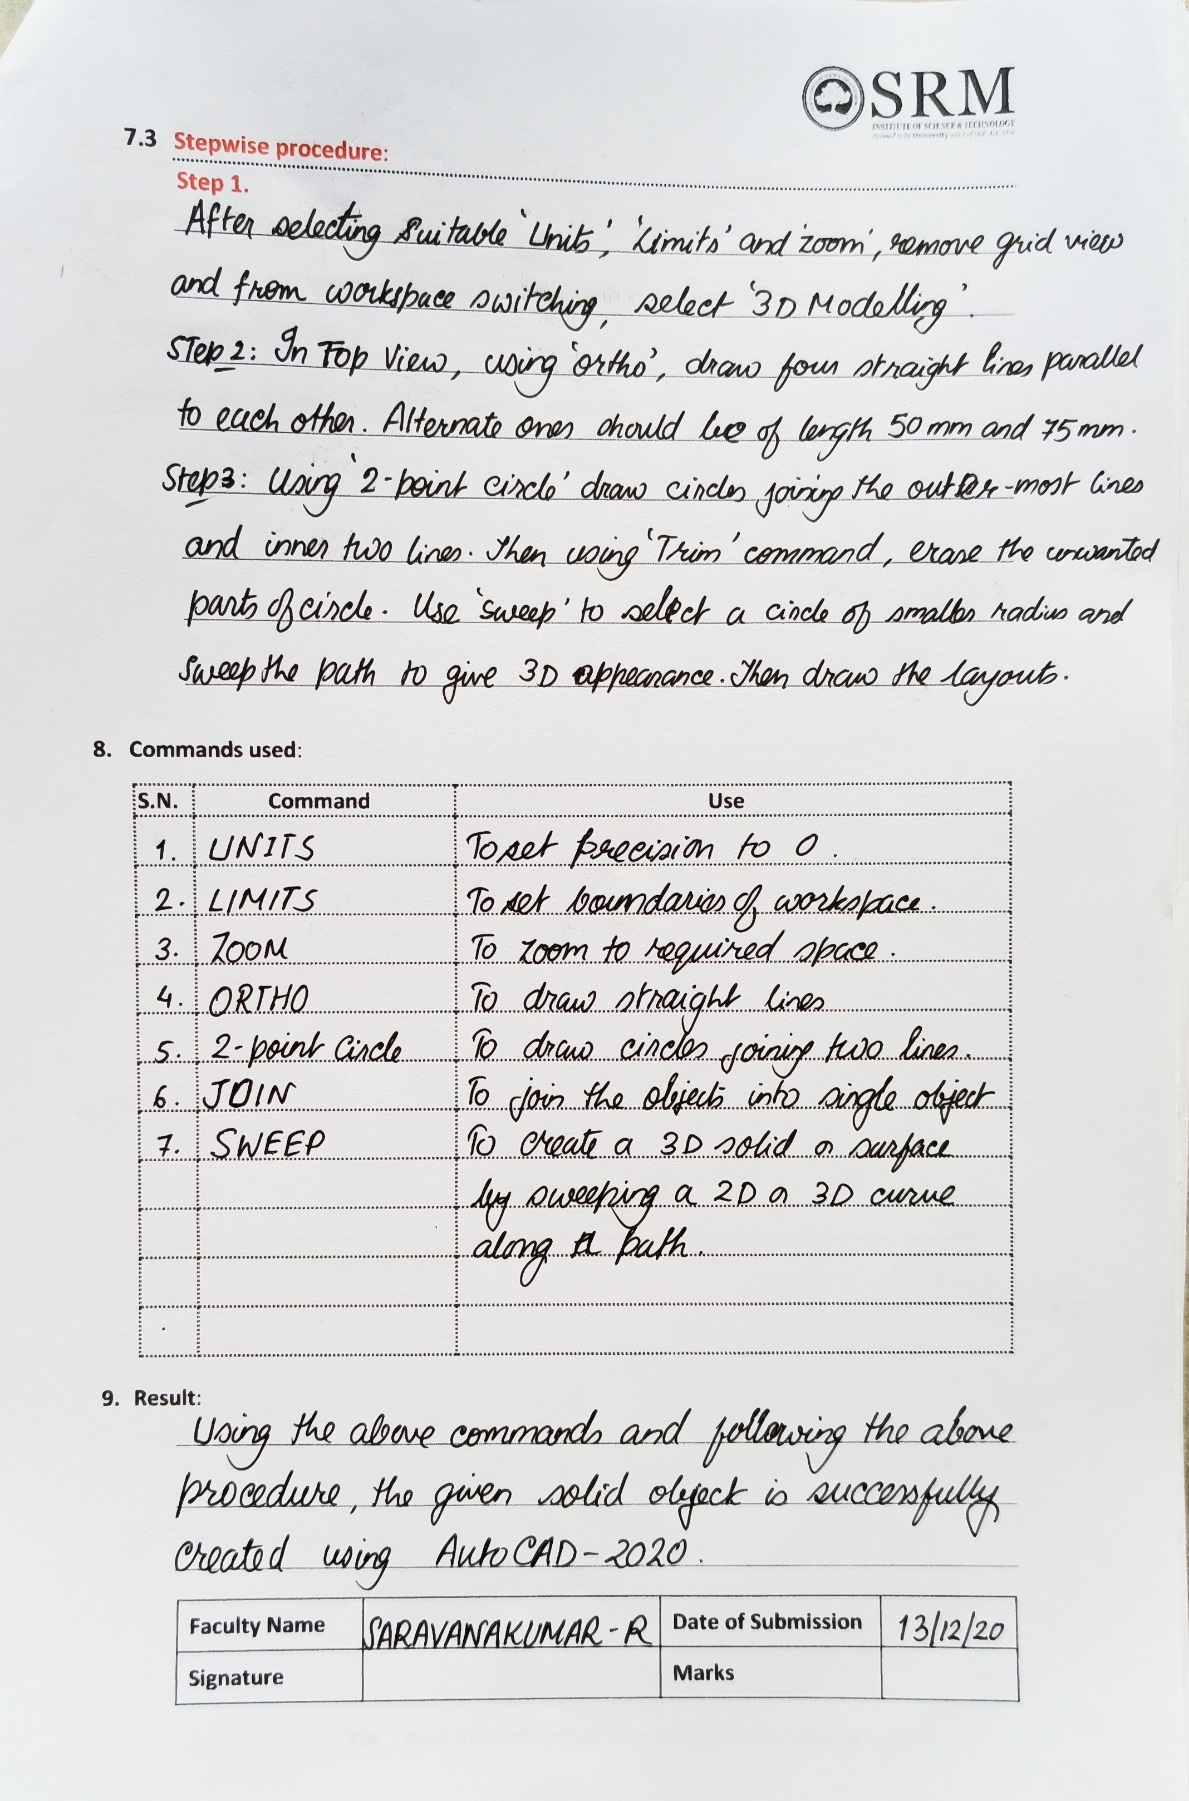 SRM
INSTITUTE OF SCIENCE & TECHNOLOGY
7.3 Stepwise procedure:
Step 1.
After selecting suitable 'Units', 'Limits' and 'zoom', remove grid view
and from workspace switching, select '3D Modelling'.
Step 2: In Top View, using 'ortho', draw four straight lines parallel
to each other. Alternate ones should be of length 50 mm and 75 mm.
Step3: Using '2-point circle' draw circles joining the outer-most lines
and inner two lines. Then using 'Trim' command, erase the unwanted
parts of circle. Use 'sweep' to select a circle of smaller radius and
sweep the path to give 3D appearance. Then draw the layouts.
8. Commands used:
S.N. Command Use
1. UNITS To set precision to 0.
2. LIMITS To set boundaries of workspace.
3. ZOOM To zoom to required space.
4. ORTHO To draw straight lines
5. 2-point Circle To draw circles joining two lines.
6. JOIN To join the objects into single object
7. SWEEP To create a 3D solid or surface
by sweeping a 2D or 3D curve
along a path.
9. Result:
Using the above commands and following the above
procedure, the given solid object is successfully
created using AutoCAD-2020.
Faculty Name SARAVANAKUMAR-R Date of Submission 13/12/20
Signature Marks